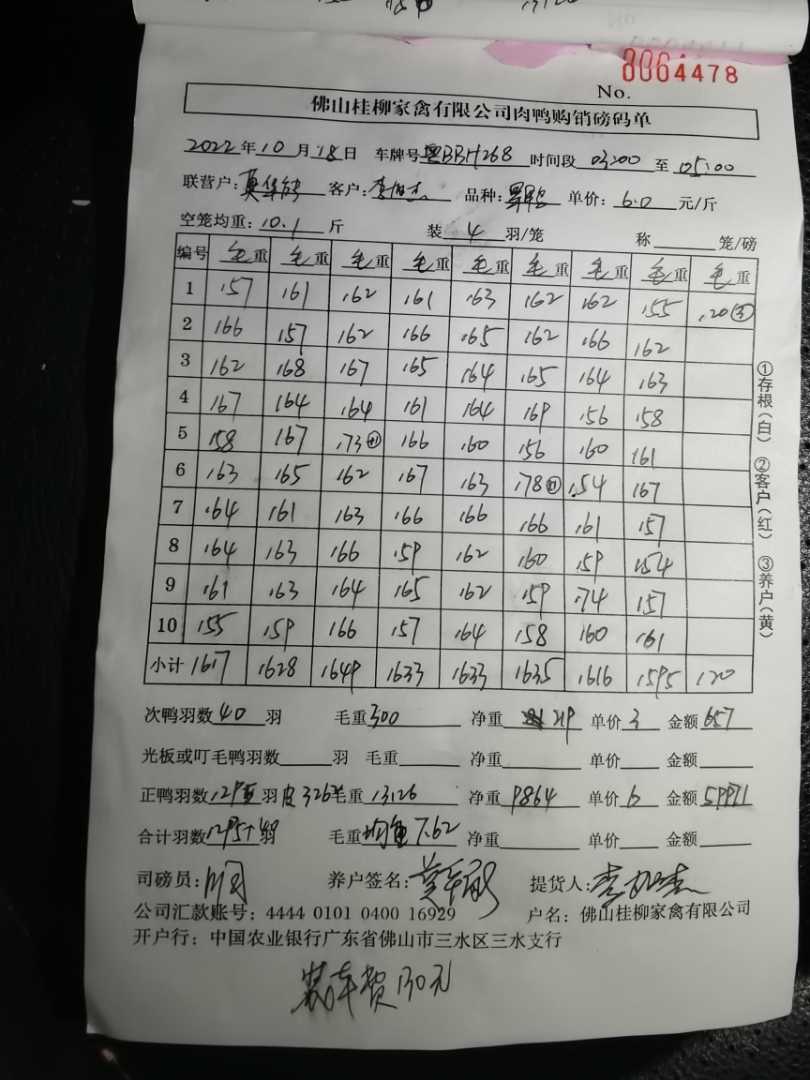 No. 8064478
佛山桂柳家禽有限公司肉鸭购销磅码单
2022年10月18日 车牌号粤BBH268 时间段 03:00 至 05:00
联营户: 客户: 品种: 单价: 6.0 元/斤
空笼均重: 10.1 斤 装 4 羽/笼 称 笼/磅
编号 毛重 毛重 毛重 毛重 毛重 毛重 毛重 毛重 毛重
1 157 161 162 161 163 162 162 155 120③
2 166 157 162 166 165 162 166 162
3 162 168 167 165 164 165 164 163
4 167 164 164 161 164 169 156 158
5 158 167 173 166 160 156 160 161
6 163 165 162 167 163 178 154 167
7 164 161 163 166 166 166 161 157
8 164 163 166 159 162 160 159 154
9 161 163 164 165 162 159 174 157
10 155 159 166 157 164 158 160 161
小计 1617 1628 1649 1633 1633 1635 1616 1595 120
①存根(白) ②客户(红) ③养户(黄)
次鸭羽数 40 羽 毛重 300 净重 219 单价 3 金额 657
光板或叮毛鸭羽数 羽 毛重 净重 单价 金额
正鸭羽数 羽 皮 毛重 13126 净重 9864 单价 6 金额
合计羽数 羽 毛重 均重 7.62 净重 单价 金额
司磅员: 养户签名: 提货人:
公司汇款账号: 4444 0101 0400 16929 户名: 佛山桂柳家禽有限公司
开户行: 中国农业银行广东省佛山市三水区三水支行
装车费130元